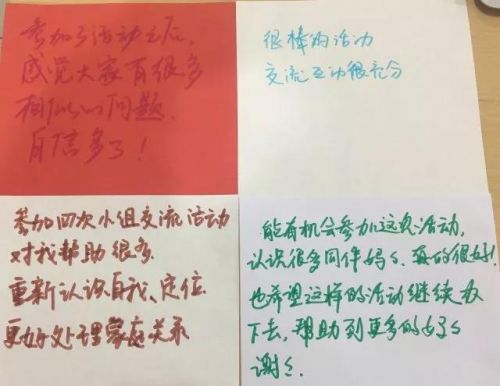 参加了活动之后，
感觉大家有很多
相似的问题，
自信多了！
很棒的活动
交流互动很充分
参加四次小组交流活动
对我帮助很多.
重新认识自我、定位
更好处理家庭关系
能有机会参加这次活动，
认识很多同伴妈々，真的很好！
也希望这样的活动继续放
下去，帮助到更多的妈々
谢々.